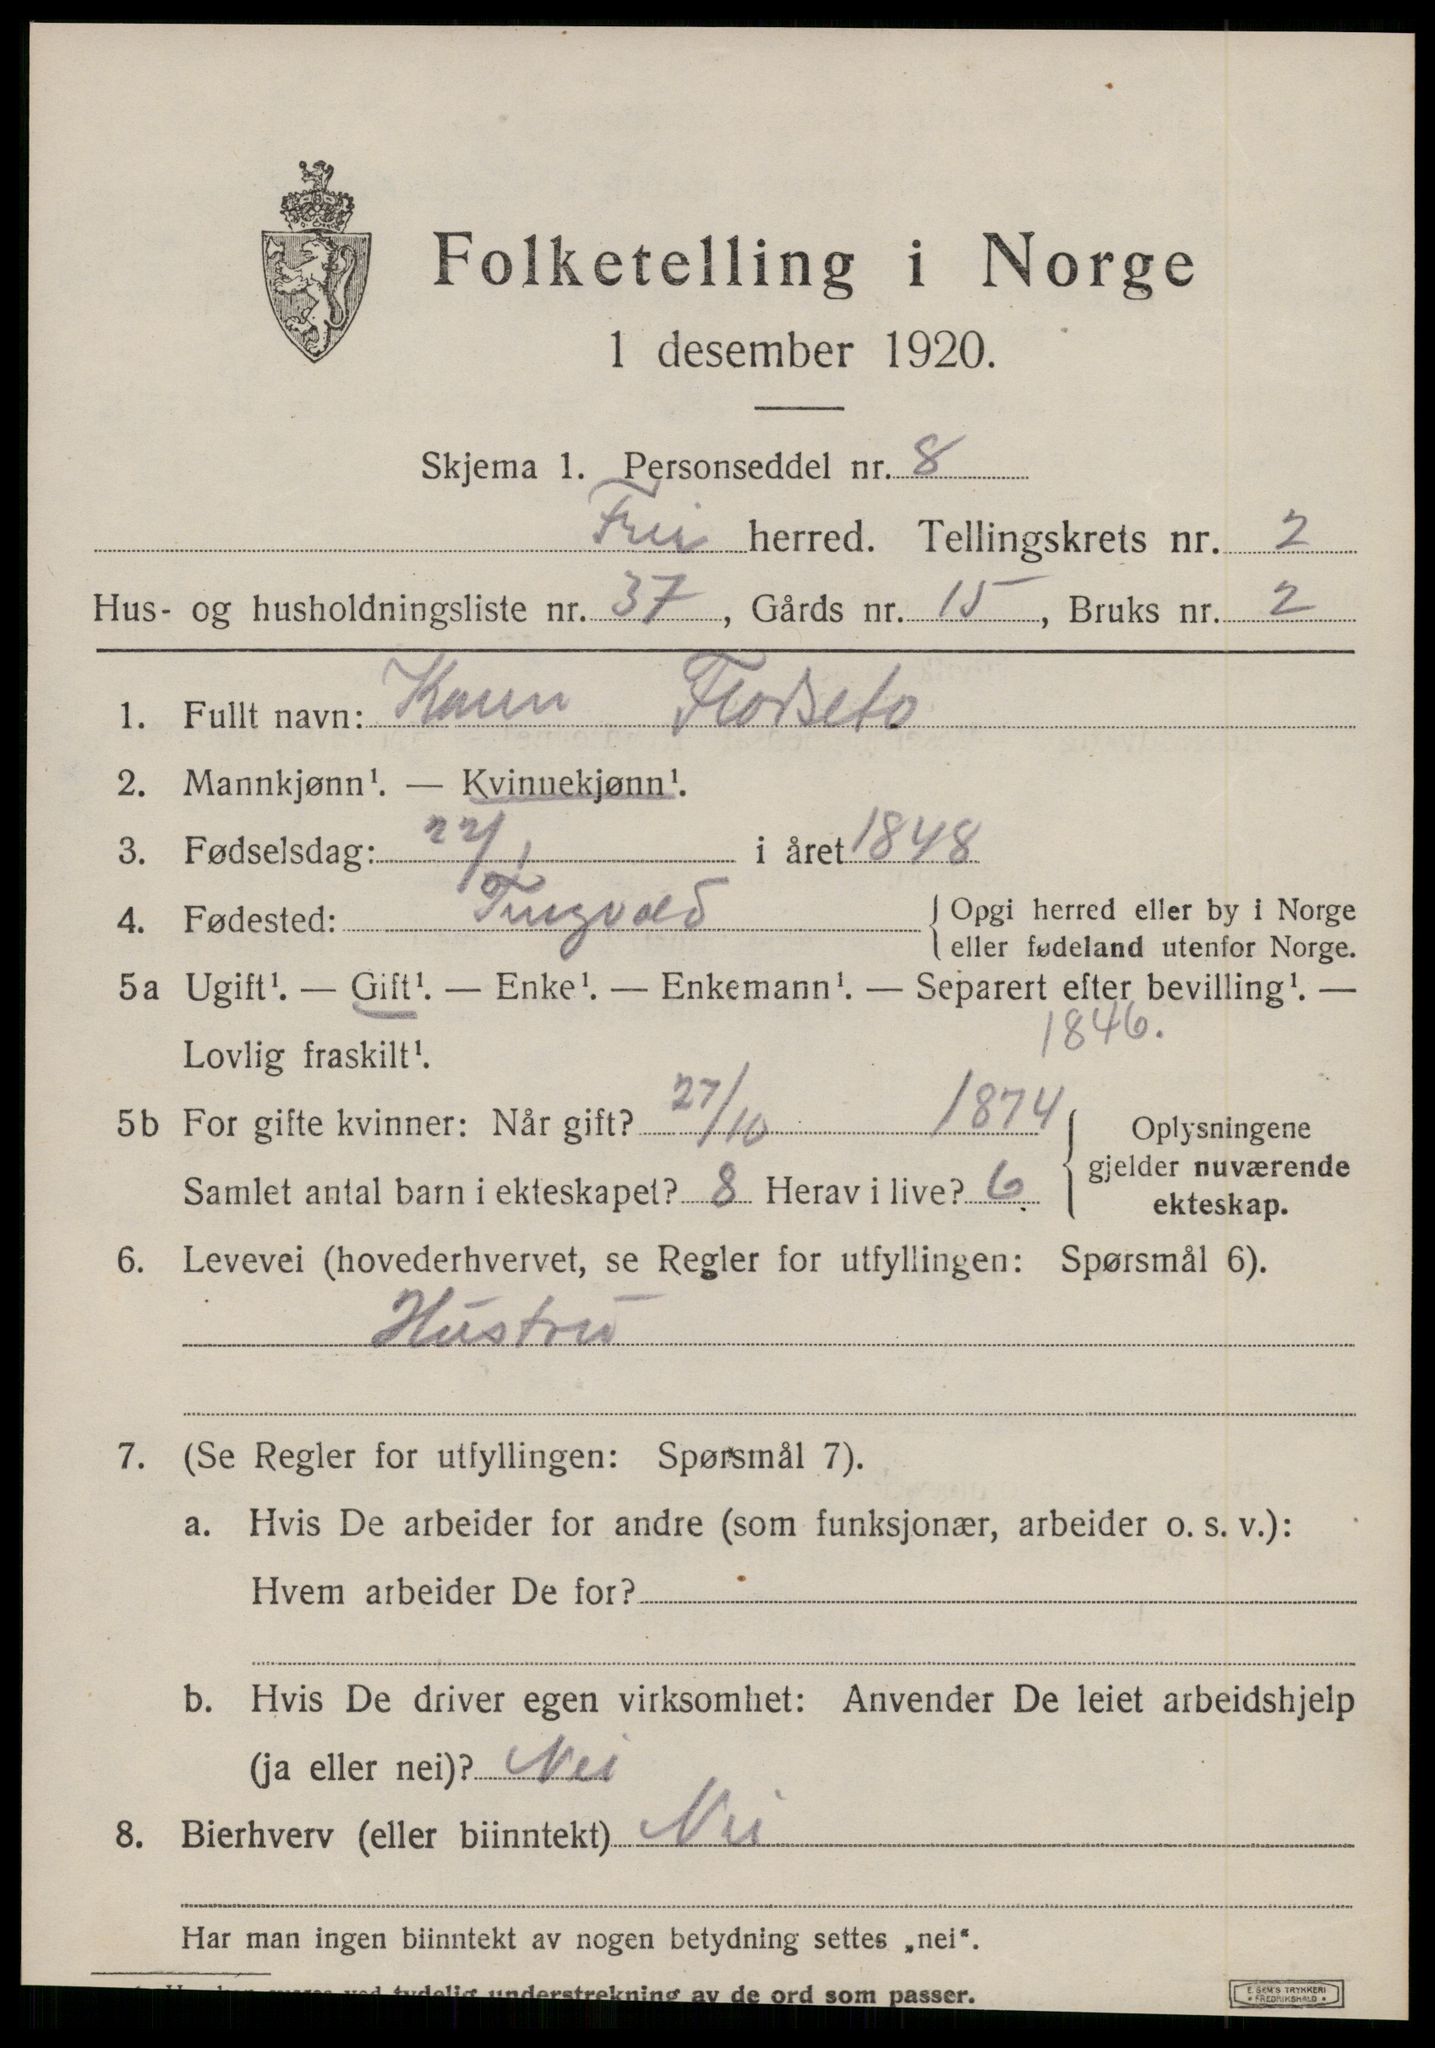 Folketelling i Norge
1 desember 1920.
Skjema 1. Personseddel nr. 8
Frei herred. Tellingskrets nr. 2
Hus- og husholdningsliste nr. 37, Gårds nr. 15, Bruks nr. 2
1. Fullt navn: Karen Flodseto
2. Mannkjønn¹. — Kvinnekjønn¹.
3. Fødselsdag: 22/1 i året 1848
4. Fødested: Tingvold { Opgi herred eller by i Norge
eller fødeland utenfor Norge.
5a Ugift¹. — Gift¹. — Enke¹. — Enkemann¹. — Separert efter bevilling¹. —
1846.
Lovlig fraskilt¹.
5b For gifte kvinner: Når gift? 27/10 1874
Samlet antal barn i ekteskapet? 8 Herav i live? 6
{ Oplysningene
gjelder nuværende
ekteskap.
6. Levevei (hovederhvervet, se Regler for utfyllingen: Spørsmål 6).
Hustru
7. (Se Regler for utfyllingen: Spørsmål 7).
a. Hvis De arbeider for andre (som funksjonær, arbeider o. s. v.):
Hvem arbeider De for?
b. Hvis De driver egen virksomhet: Anvender De leiet arbeidshjelp
(ja eller nei)? Nei
8. Bierhverv (eller biinntekt) Nei
Har man ingen biinntekt av nogen betydning settes „nei“.
tydelig understrekning av de ord som passer.
E. SEM'S TRYKKERI
FREDRIKSHALD